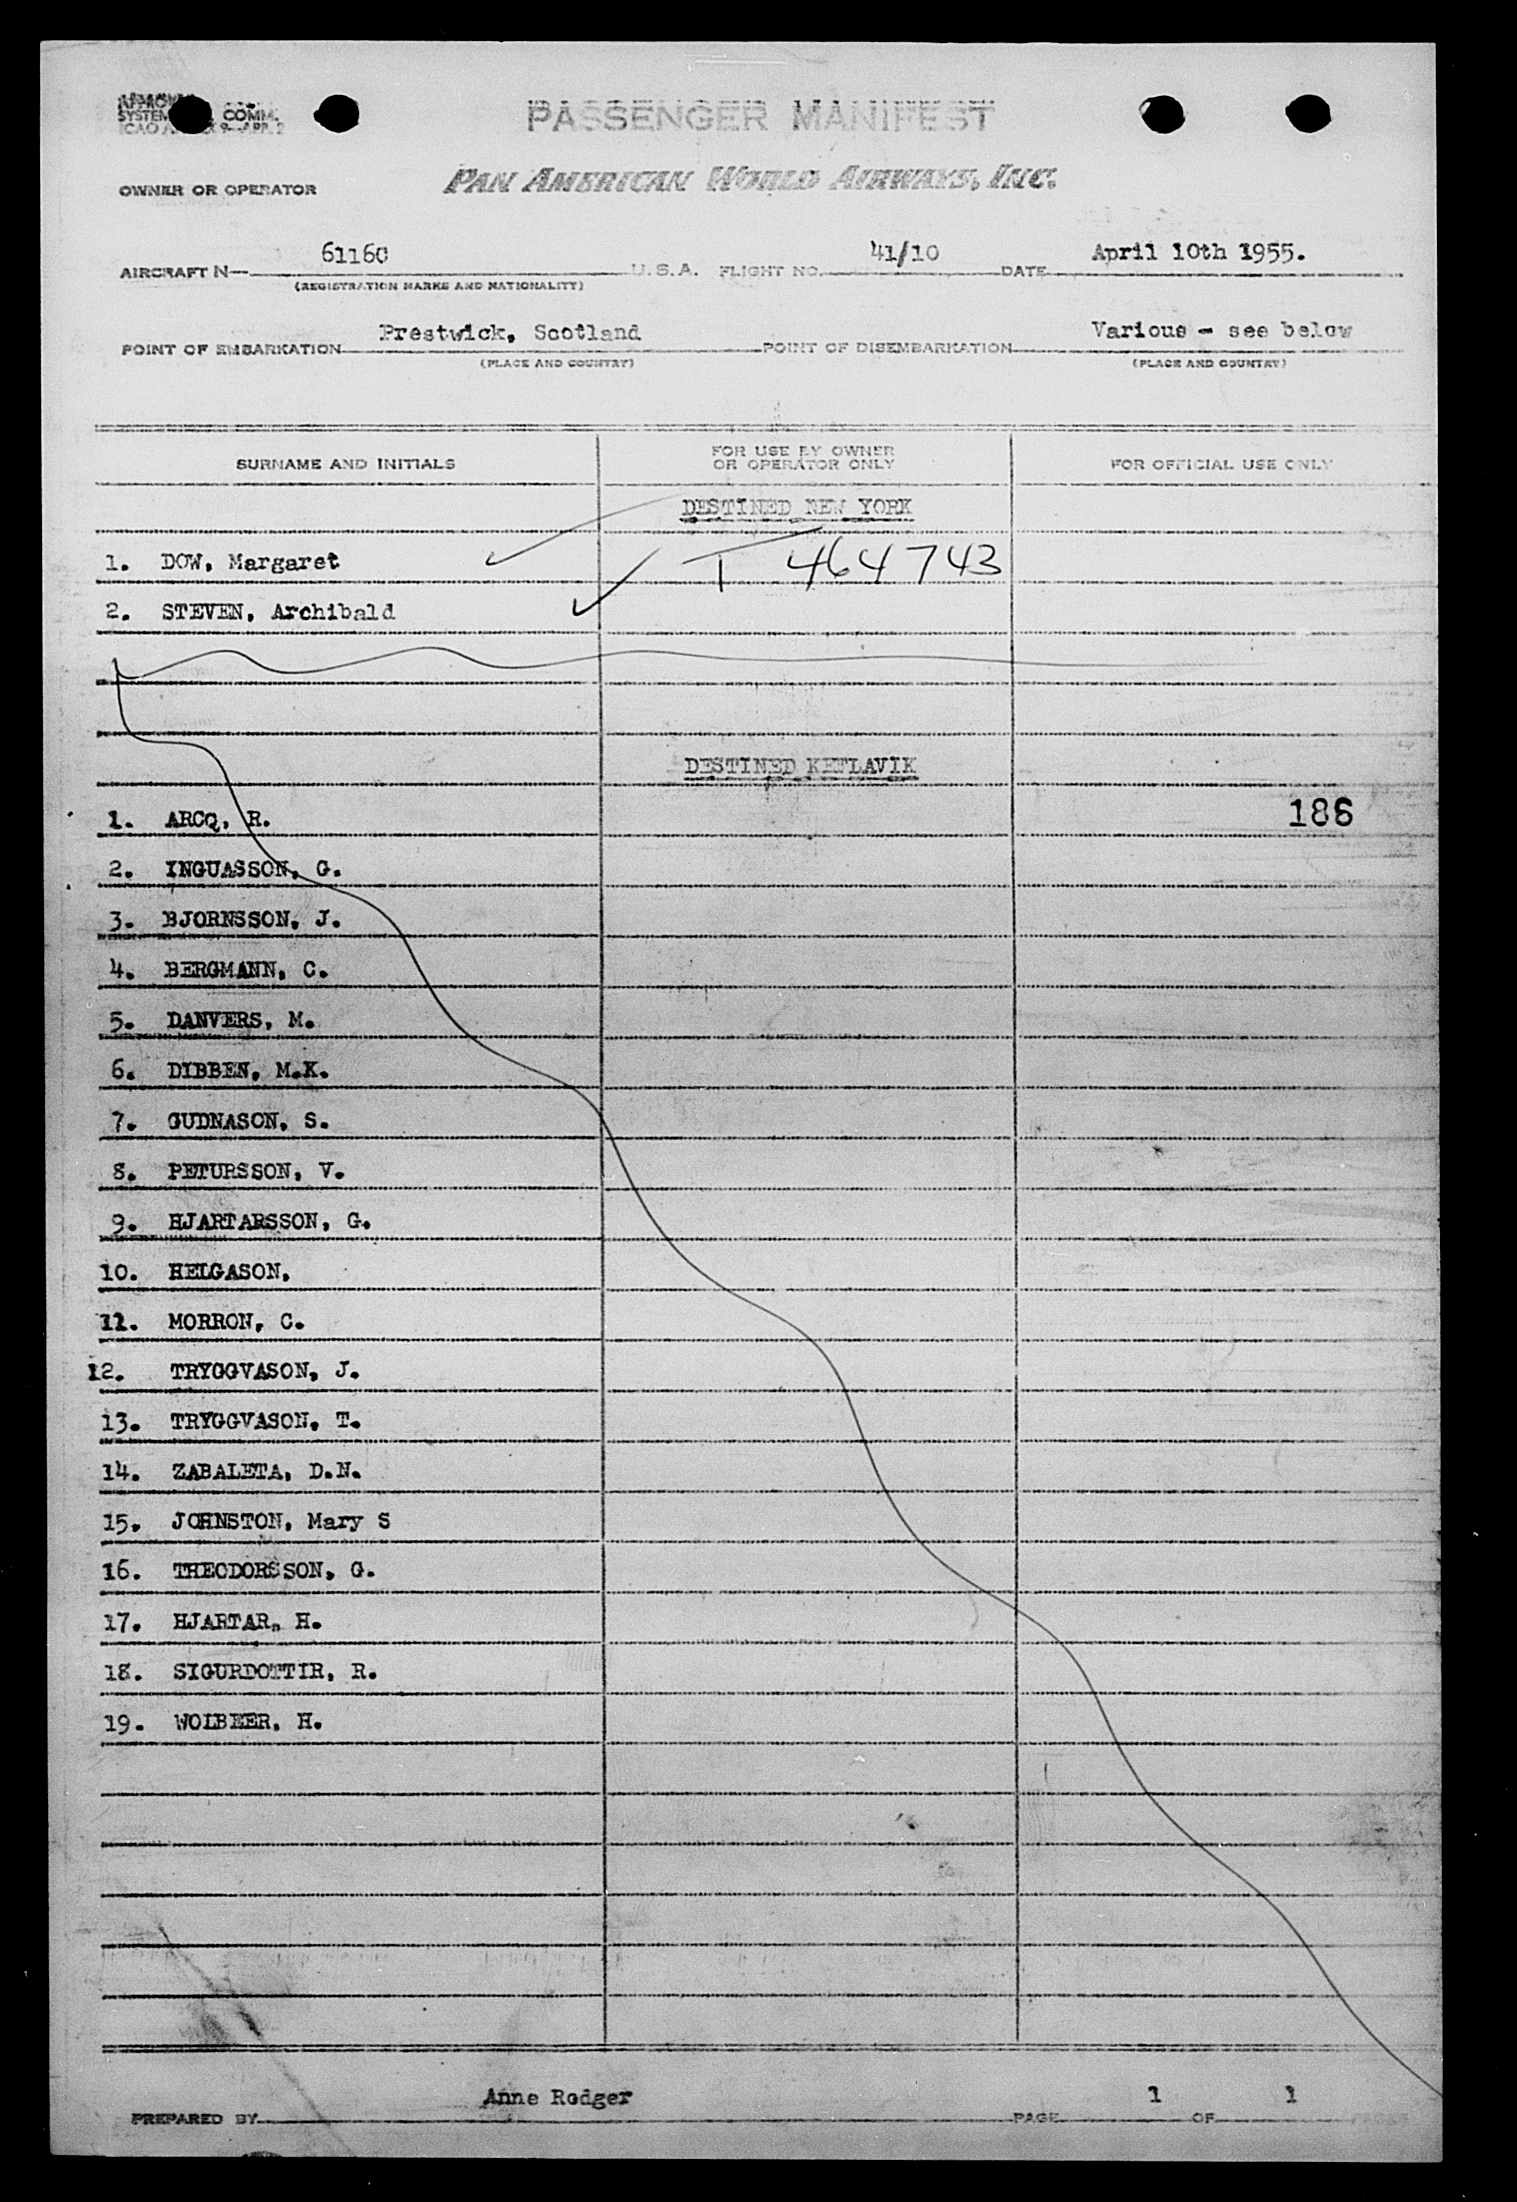 SYSTEM COMM.
PASSENGER MANIFEST
OWNER OR OPERATOR PAN AMERICAN WORLD AIRWAYS, INC.
AIRCRAFT N— 6116C U.S.A. FLIGHT NO. 41/10 DATE April 10th 1955.
(REGISTRATION MARKS AND NATIONALITY)
POINT OF EMBARKATION Prestwick, Scotland POINT OF DISEMBARKATION Various - see below
(PLACE AND COUNTRY) (PLACE AND COUNTRY)
SURNAME AND INITIALS FOR USE BY OWNER OR OPERATOR ONLY FOR OFFICIAL USE ONLY
DESTINED NEW YORK
1. DOW, Margaret T 464743
2. STEVEN, Archibald
DESTINED KEFLAVIK
1. ARCQ, R. 186
2. INGUASSON, G.
3. BJORNSSON, J.
4. BERGMANN, C.
5. DANVERS, M.
6. DIBBEN, M.K.
7. GUDNASON, S.
8. PETURSSON, V.
9. HJARTARSSON, G.
10. HELGASON,
11. MORRON, C.
12. TRYGGVASON, J.
13. TRYGGVASON, T.
14. ZABALETA, D.N.
15. JOHNSTON, Mary S
16. THEODORSSON, G.
17. HJARTAR, H.
18. SIGURDOTTIR, R.
19. WOLBEER, H.
PREPARED BY Anne Rodger PAGE 1 OF 1 PAGES